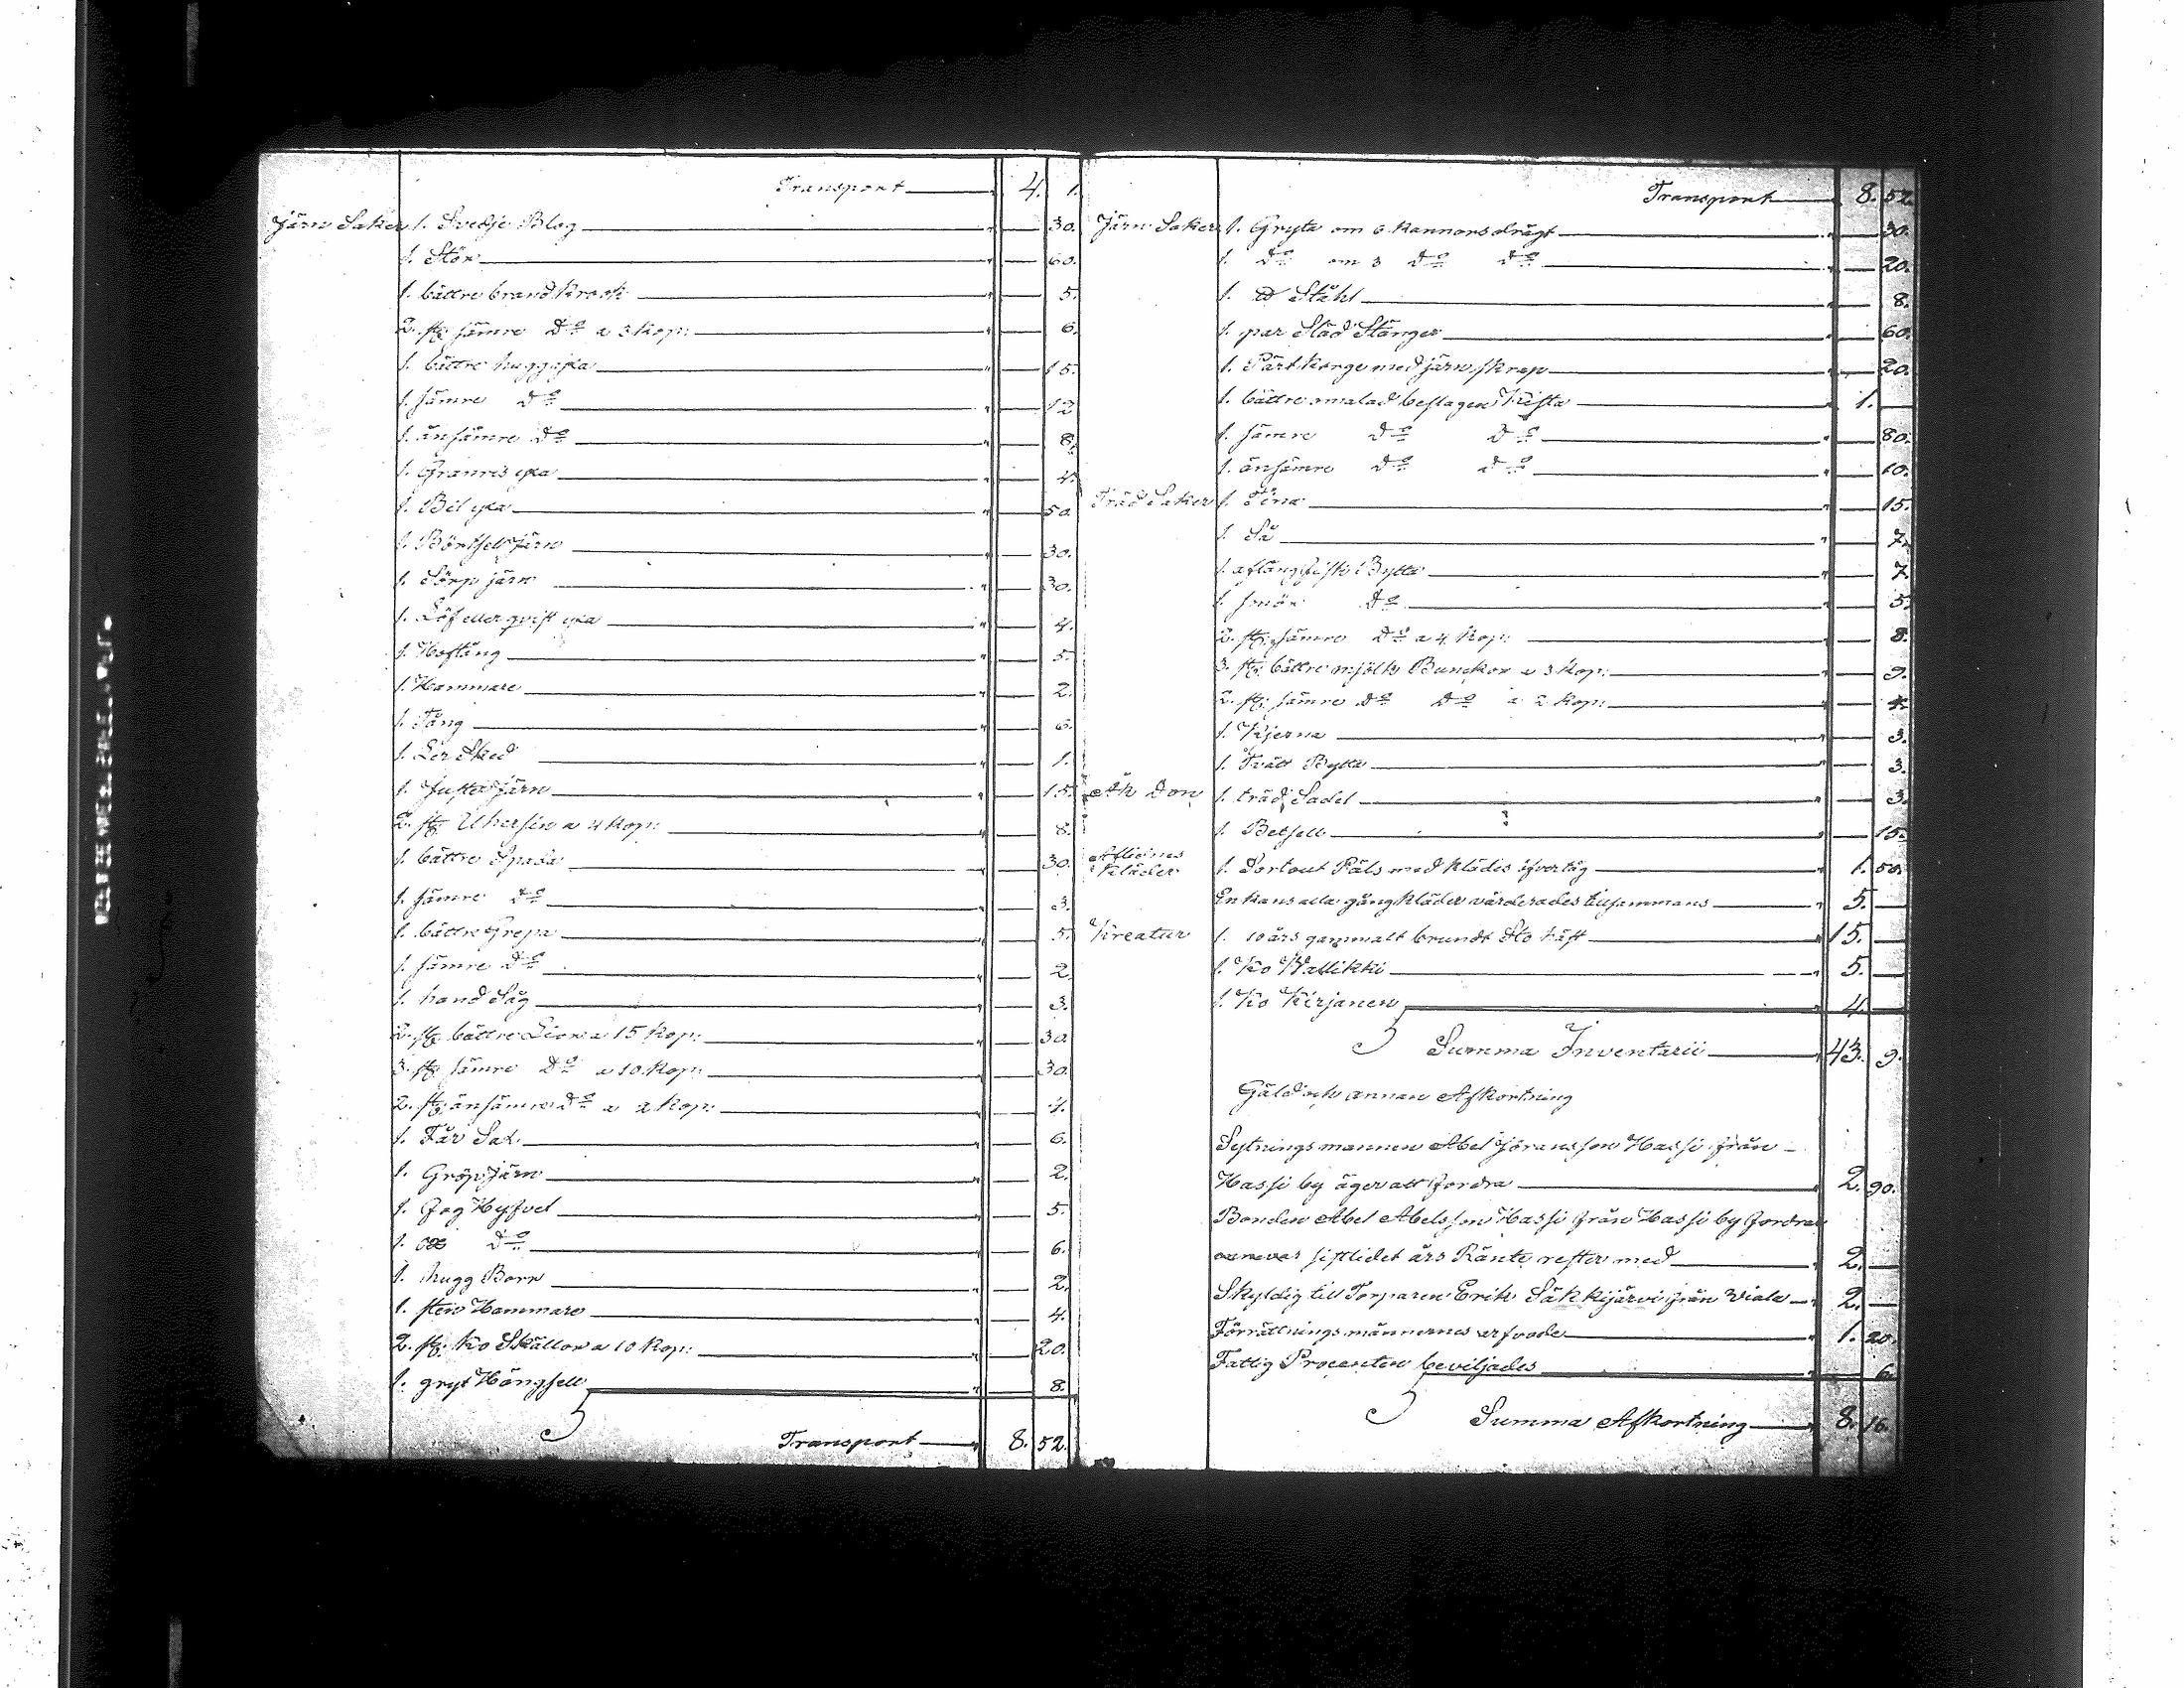 Transport 4. 1.
Järn Saker 1. Svedje Blog " — 30.
1. Stör " — 60.
1. bättre brand Krock " — 5.
2. st: sämre Do a 3 Kop: " — 6.
1. bättre huggyxa " — 15.
1. sämre Do " — 12
1. änsämre Do " — 8.
1. Granris yxa " — 4.
1. Bil yxa " — 50.
1. järn " — 30.
1. Sörp järn " — 30.
1. Löf eller qvist yxa " — 4.
1. Hoftång " — 5.
1. Hammare " — 2.
1. Tång " — 6.
1. Ler Sked " — 1.
1. järn " — 15.
2. st: a 4 Kop: " — 8.
1. bättre Spada " — 30.
1. sämre Do " — 3.
1. bättre Grepa " — 5.
1. sämre Do " — 2
1. hand Såg " — 3.
2. st: bättre Lior a 15 Kop: " — 30
3. st: sämre Do a 10 Kop: " — 30.
2. st: änsämre Do a 2 Kop: " — 4.
1. Får Sax " — 6.
1. Gröpjärn " — 2.
1. Fog Hyfvel " — 5.
1. Do " — 6.
1. hugg Borr " — 2.
1. sten Hammare " — 4.
2. st: Ko Skällor a 10 Kop: " — 20.
1. gryt Hängsell " — 8.
Transport " 8. 52.
Transport " 8. 52.
Järn Saker 1. Gryta om 6 Kannors drägt " — 30.
1. Do om 3 Do Do " — 20.
1. Ståhl " — 8.
1. par Släd Stänger " — 60.
1. Pärt Korge med järn skrap " — 20.
1. bättre omalad beslagen Kista " 1. —
1. sämre Do Do " — 80.
1. änsämre Do Do " — 10.
Träd Saker 1. Tina " — 15.
1. Så " — 7.
1. aflång Bytta " — 7.
1. smör Do " — 5.
2. st: sämre Do a 4 Kop: " — 8.
3. st: bättre mjölks Bunckor a 3 Kop: " — 9.
2. st: sämre Do Do a 2 Kop: " — 4.
1. Kjerna " — 3.
1. Tvätt Bytta " — 3.
Åk Don 1. träd Sadel " — 3.
1. Betsell " — 15.
Aflidnes
Kläder 1. Sortout Päls med klädes öfvertåg " 1. 50.
En hans alla gång kläder värderades tillsammans " 5. —
Kreatur 1. 10 års gammalt brundt Sto häst " 15. —
1. Ko Wallikki " 5. —
1. Ko Kirjanen " 4. —
Summa Inventarii " 43. 9.
Gäld och annan Afkortning
Sytnings mannen Abel Göransson Hassi från
Hassi by äger att fordra " 2. 90.
Bonden Abel Abelsson Hassi från Hassi by fordrar
sistlidet års Ränte rester med " 2. —
Skyldig till Torparen Erik Säkkijärvi från Wiala " 2. —
Förrättnings männernes arfvode " 1. 20.
Fattig Procenten beviljades " — 6.
Summa Afkortning " 8. 16.